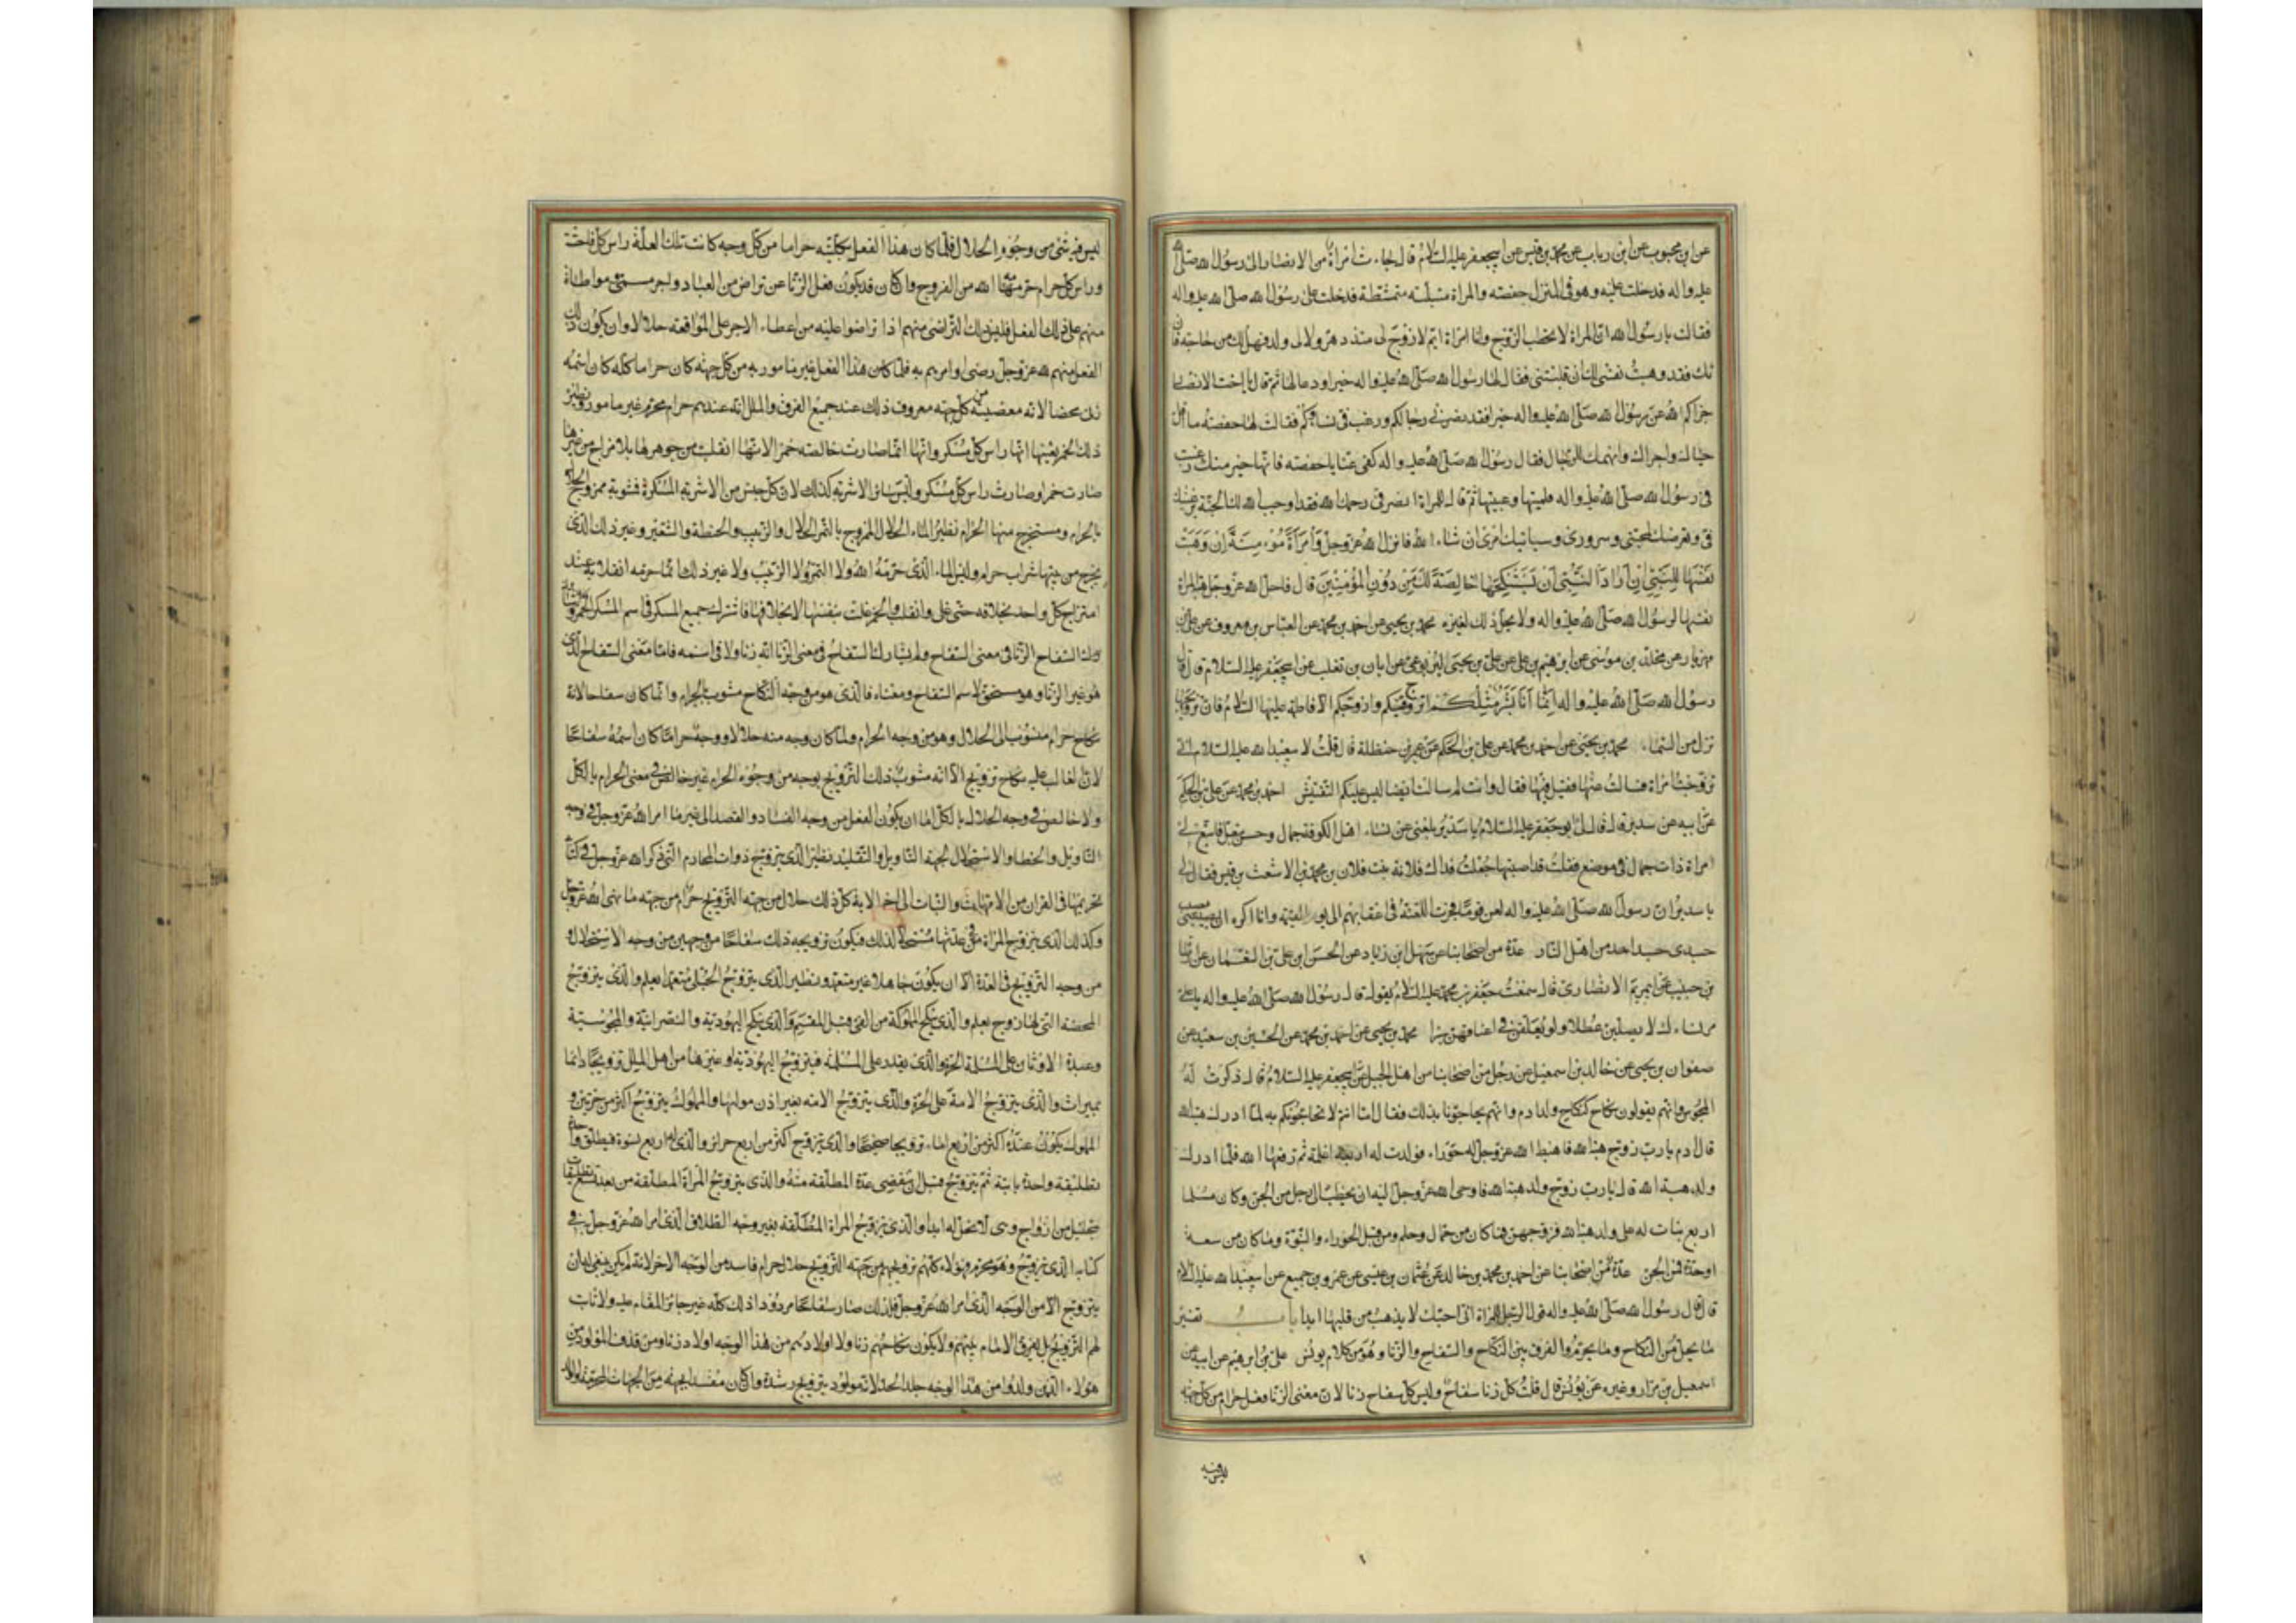 عن ابن محبوب عن ابن رياب عن محمد بن قيس عن ابيجعفر عليه السلام قال جاءت امراة من الانصار الى رسول الله صلى الله
عليه واله فدخلت عليه وهو فى المنزل حفصه والمراة متلبسته متمشطة فدخلت على رسول الله صلى الله عليه واله
فقالت يا رسول الله ان المراة لا تخطب الزوج وانا امراة ايم لا زوج لى منذ دهر ولا لى ولد فهل لك من حاجة فان
تك فقد وهبت نفسى لك ان قبلتنى فقال لها رسول الله صلى الله عليه واله خيرا ودعا لها ثم قال يا اخت الانصار
جزاكم الله عن رسول الله صلى الله عليه واله خيرا فقد نصرنى رجالكم ورغبت فى نساؤكم فقالت لها حفصة ما اقل
حياك واجراك وانهمك للرجال فقال رسول الله صلى الله عليه واله كفى عنها يا حفصه فانها خير منك رغبت
فى رسول الله صلى الله عليه واله فلمتها وعيبتها ثم قال للمراة انصرفى رحمك الله فقد اوجب الله لك الجنة لرغبتك
فى وتعرضك لمحبتى وسرورى وسياتيك امرى ان شاء الله فانزل الله عز وجل وَامْرَأَةً مُؤْمِنَةً اِنْ وَهَبَتْ
نَفْسَهَا لِلنَّبِىِّ اِنْ اَرَادَ النَّبِىُّ اَنْ يَسْتَنْكِحَهَا خَالِصَةً لَكَ مِنْ دُونِ الْمُؤْمِنِينَ قال فاحل الله عز وجل هبة المراة
نفسها لرسول الله صلى الله عليه واله ولا يحل ذلك لغيره محمد بن يحيى عن احمد بن محمد عن العباس بن معروف عن على بن
مهزيار عن مخلد بن موسى عن ابرهيم بن على عن على بن يحيى اليربوعى عن ابان بن تغلب عن ابيجعفر عليه السلام قال قال
رسول الله صلى الله عليه واله انما انا بشر مثلكم اتزوج فيكم وازوجكم الا فاطمة عليها السلام فان تزويجها
نزل من السماء محمد بن يحيى عن احمد بن محمد عن على بن الحكم عن عمر بن حنظلة قال قلت لا بيعبدالله عليه السلام انى
تزوجت امراة فسالت عنها فقيل فيها فقال وانت لم سالت ايضا ليس عليكم التفتيش احمد بن محمد عن على بن الحكم
عن ابيه عن سدير قال قال لى ابو جعفر عليه السلام يا سدير بلغنى عن نساء اهل الكوفة جمال وحسن تبعل فابتغ لى
امراة ذات جمال فى موضع فقلت قد اصبتها جعلت فداك فلانة بنت فلان بن محمد بن الاشعث بن قيس فقال لى
يا سدير ان رسول الله صلى الله عليه واله لعن قوما فجرت اللعنة فى اعقابهم الى يوم القيمة وانا اكره ان يصيب
جسدى جسد احد من اهل النار عدة من اصحابنا عن سهل ابن زياد عن الحسن ابن على بن النعمان عن ارطاة
بن حبيب عن ابى مريم الانصارى قال سمعت جعفر بن محمد عليه السلام يقول قال رسول الله صلى الله عليه واله يا على
مر نساءك لا يصلين عطلا ولو يعلقن فى اعناقهن سيرا محمد بن يحيى عن احمد بن محمد عن الحسين بن سعيد عن
صفوان بن يحيى عن خالد بن اسمعيل عن رجل من اصحابنا من اهل الجبل عن ابيجعفر عليه السلام قال ذكرت له
المجوس وانهم يقولون نكاح كنكاح ولد ادم وانهم يحاجونا بذلك فقال اما انتم لا يحاجونكم به لما ادرك هبة الله
قال ادم يا رب زوج هبة الله فاهبط الله عز وجل له حوراء فولدت له اربعة اغلمة ثم رفعها الله فلما ادرك
ولد هبة الله قال يا رب زوج ولد هبة الله فاوحى الله عز وجل اليه ان يخطب الى رجل من الجن وكان مسلما
اربع بنات له على ولد هبة الله فزوجهن فما كان من جمال وحلم ومن قبل الحوراء والنبوة وما كان من سعة
او حدة فمن الجن عدة من اصحابنا عن احمد بن محمد بن خالد عن عثمان بن عيسى عن عمرو بن جميع عن ابيعبد الله عليه السلام
قال قال رسول الله صلى الله عليه واله قول الرجل للمراة انى احبك لا يذهب من قلبها ابدا باب تفسير
ما يحل من النكاح وما يحرم والفرق بين النكاح والسفاح والزنا وهو من كلام يونس على بن ابرهيم عن ابيه عن
اسمعيل بن مرار وغيره عن يونس قال قلت كل زنا سفاح وليس كل سفاح زنا لان معنى الزنا فعل حرام من كل جهة
ليس فيه
ليس فيه شئ من وجوه الحلال فلما كان هذا الفعل بكليته حراما من كل وجه كانت تلك العلة راس كل فاحشة
وراس كل حرام حرمه الله من الفروج كلها وان كان قد يكون فعل الزنا عن تراض من العباد واجر مسمى ومواطاة
منهم على ذلك الفعل فليس ذلك التراضى منهم اذا تراضوا عليه من اعطاء الاجر على المواقعة حلالا وان يكون ذلك
الفعل منهم لله عز وجل رضى وامرهم به فلما كان هذا الفعل غير مامور به من كل جهة كان حراما كله كان اسمه
زنا محضا لانه معصية من كل جهة معروف ذلك عند جميع الفرق والملل انه عندهم حرام محرم غير مامور ونظير
ذلك الخمر بعينها انها راس كل مسكر وانها انما صارت خالصة خمرا لانها انقلبت من جوهرها بلا مزاج من غيرها
صارت خمرا وصارت راس كل مسكر وليس سائر الاشربة كذلك لان كل جنس من الاشربة المسكرة فمشوبة ممزوج الحلال
بالحرام ومستخرج منها الحرام نظير الماء الحلال الممزوج بالتمر الحلال والزبيب والحنطة والشعير وغير ذلك الذى
يخرج من بينها شراب حرام وليس الماء الذى حرمه الله ولا التمر ولا الزبيب ولا غير ذلك انما حرمه انقلابه عند
امتزاج كل واحد بخلافه حتى غلى وانقلب والخمر غلت بنفسها لا بخلافها فاشترك جميع المسكر فى اسم الخمر وكذلك
شارك السفاح الزنا فى معنى السفاح ولم يشارك السفاح فى معنى الزنا انه زنا ولا فى اسمه فاما معنى السفاح الذى
هو غير الزنا وهو مستحق لاسم السفاح ومعناه فالذى هو من وجه النكاح مشوب بالحرام وانما كان سفاحا لانه
نكاح حرام منسوب الى الحلال وهو من وجه الحرام ولما كان وجه منه حلالا ووجه حراما كان اسمه سفاحا
لان الغالب عليه نكاح تزويج الا انه مشوب ذلك التزويج بوجه من وجوه الحرام غير خالص فى معنى الحرام بالكل
ولا خالص فى وجه الحلال بالكل اما ان يكون الفعل من وجه الفساد والقصد الى غير ما امر الله عز وجل فيه من وجه
التاويل والخطا والاستحلال بجهة التاويل والتقليد نظير الذى يتزوج ذوات المحارم التى ذكرها الله عز وجل فى كتابه
تحريمها فى القران من الامهات والبنات الى اخر الاية كل ذلك حلال من جهة التزويج حرام من جهة ما نهى الله عز وجل
وكذلك الذى يتزوج المراة فى عدتها مستحلا لذلك فيكون تزويجه ذلك سفاحا من وجهين من وجه الاستحلال و
من وجه التزويج فى العدة الا ان يكون جاهلا غير متعمد ونظير الذى يتزوج الحبلى متعمدا بعلم والذى يتزوج
المحصنة التى لها زوج بعلم والذى ينكح المملوكة من الفئ قبل المقسم والذى ينكح اليهودية والنصرانية والمجوسية
وعبدة الاوثان على المسلمة الحرة والذى يقدر على المسلمة فيتزوج اليهودية او غيرها من اهل الملل تزويجا دائما
بميراث والذى يتزوج الامة على الحرة والذى يتزوج الامة بغير اذن مواليها والمملوك يتزوج اكثر من حرتين و
المملوك يكون عنده اكثر من اربع اماء تزويجا صحيحا والذى يتزوج اكثر من اربع حرائر والذى له اربع نسوة فيطلق واحدة
تطليقة واحدة باينة ثم يتزوج قبل ان ينقضى عدة المطلقة منه والذى يتزوج المراة المطلقة من بعد تسع تطليقات
بتحليل من ازواج وهى لا تحل له ابدا والذى يتزوج المراة المطلقة بغير وجه الطلاق الذى امر الله عز وجل به فى
كتابه والذى يتزوج وهو محرم فهؤلاء كلهم تزويجهم من جهة التزويج حلال حرام فاسد من الوجه الاخر لانه لم يكن ينبغى له ان
يتزوج الا من الوجه الذى امر الله عز وجل فلذلك صار سفاحا مردودا ذلك كله غير جائز المقام عليه ولا ثابت
لهم التزويج بل يفرق الامام بينهم ولا يكون نكاحهم زنا ولا اولادهم من هذا الوجه اولاد زنا ومن قذف المولود من
هؤلاء الذين ولدوا من هذا الوجه جلد الحد لانه مولود بتزويج رشدة وان كان مفسدا بجهة من الجهات المحرمة والولد